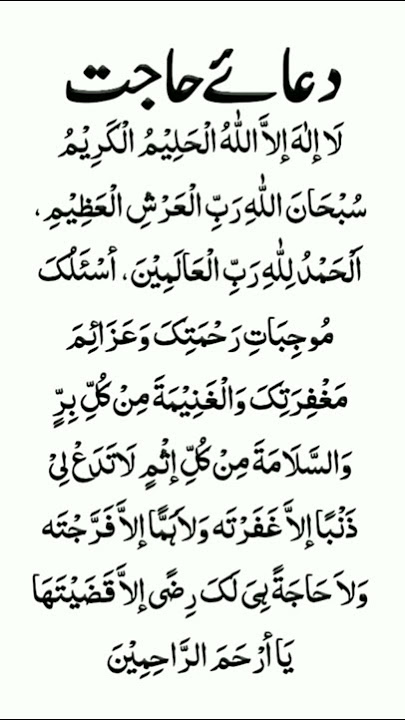 دعائے حاجت
لَا إِلٰهَ إِلاَّ اللّٰهُ الْحَلِيْمُ الْكَرِيْمُ
سُبْحَانَ اللّٰهِ رَبِّ الْعَرْشِ الْعَظِيْمِ،
اَلْحَمْدُ لِلّٰهِ رَبِّ الْعَالَمِيْنَ، أَسْئَلُکَ
مُوجِبَاتِ رَحْمَتِکَ وَعَزَائِمَ
مَغْفِرَتِکَ وَالْغَنِيْمَةَ مِنْ کُلِّ بِرٍّ
وَالسَّلَامَةَ مِنْ کُلِّ إِثْمٍ لَا تَدَعْ لِیْ
ذَنْبًا إِلاَّ غَفَرْتَه وَلاَ هَمًّا إِلاَّ فَرَّجْتَه
وَلاَ حَاجَةً هِیَ لَکَ رِضًی إِلاَّ قَضَيْتَهَا
يَا أَرْحَمَ الرَّاحِمِيْنَ